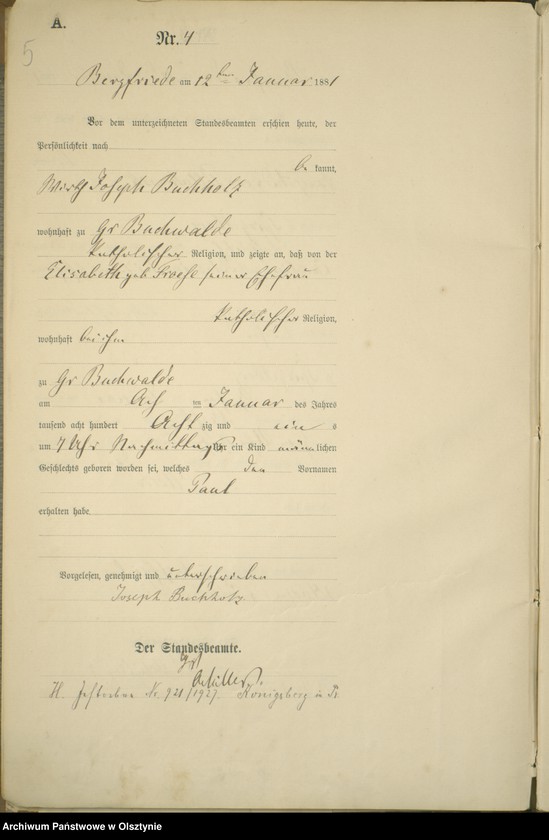 A.
5
Nr. 4
Bergfriede am 12ten Januar 1881
Vor dem unterzeichneten Standesbeamten erschien heute, der
Persönlichkeit nach
be kannt,
Wirth Joseph Buchholz
wohnhaft zu Gr Buchwalde
katholischer Religion, und zeigte an, daß von der
Elisabeth geb seiner Ehefrau
katholischer Religion,
wohnhaft bei ihm
zu Gr Buchwalde
am Januar des Jahres
tausend acht hundert Acht zig und ein s
um 4 Uhr Nachmittags ein Kind männlichen
Geschlechts geboren worden sei, welches den Vornamen
Paul
erhalten habe
Vorgelesen, genehmigt und unterschrieben
Joseph Buchholz
Der Standesbeamte.
Nr. 921/1927 Königsberg i. Pr.
Archiwum Państwowe w Olsztynie